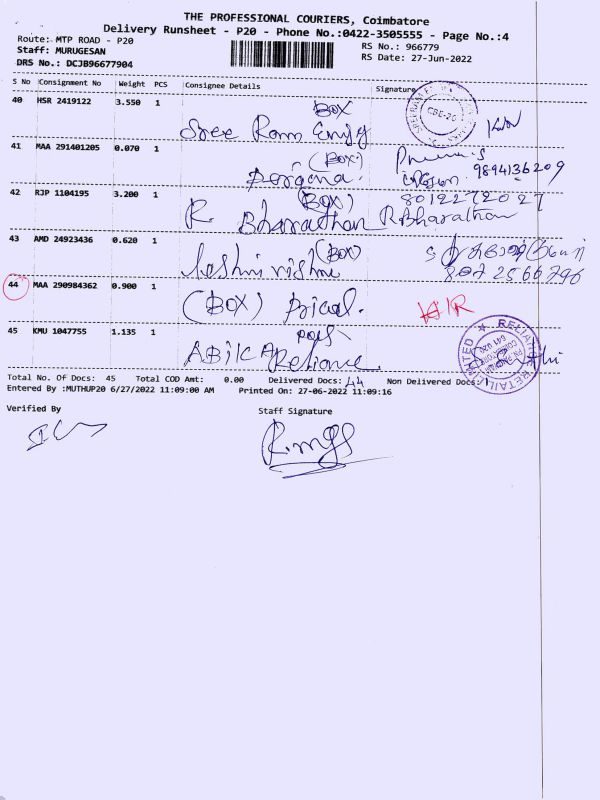 THE PROFESSIONAL COURIERS, Coimbatore
Delivery Runsheet - P20 - Phone No.:0422-3505555 - Page No.:4
Route: MTP ROAD - P20
RS No.: 966779
Staff: MURUGESAN
RS Date: 27-Jun-2022
DRS No.: DCJB96677904
S No Consignment No Weight PCS Consignee Details Signature
40 HSR 2419122 3.550 1 BOX
Sree Ram
CBE-20
41 MAA 291401205 0.070 1 (BOX)
9894136209
42 RJP 1104195 3.200 1 (BOX) 8012272027
R. Bharathan R.Bharathan
43 AMD 24923436 0.620 1 (BOX)
807 2566796
44 MAA 290984362 0.900 1 (BOX) Pricol.
45 KMU 1047755 1.135 1
Reliance
RELIANCE RETAIL LIMITED
Total No. Of Docs: 45 Total COD Amt: 0.00 Delivered Docs: 44 Non Delivered Docs: 1
Entered By :MUTHUP20 6/27/2022 11:09:00 AM Printed On: 27-06-2022 11:09:16
Verified By Staff Signature